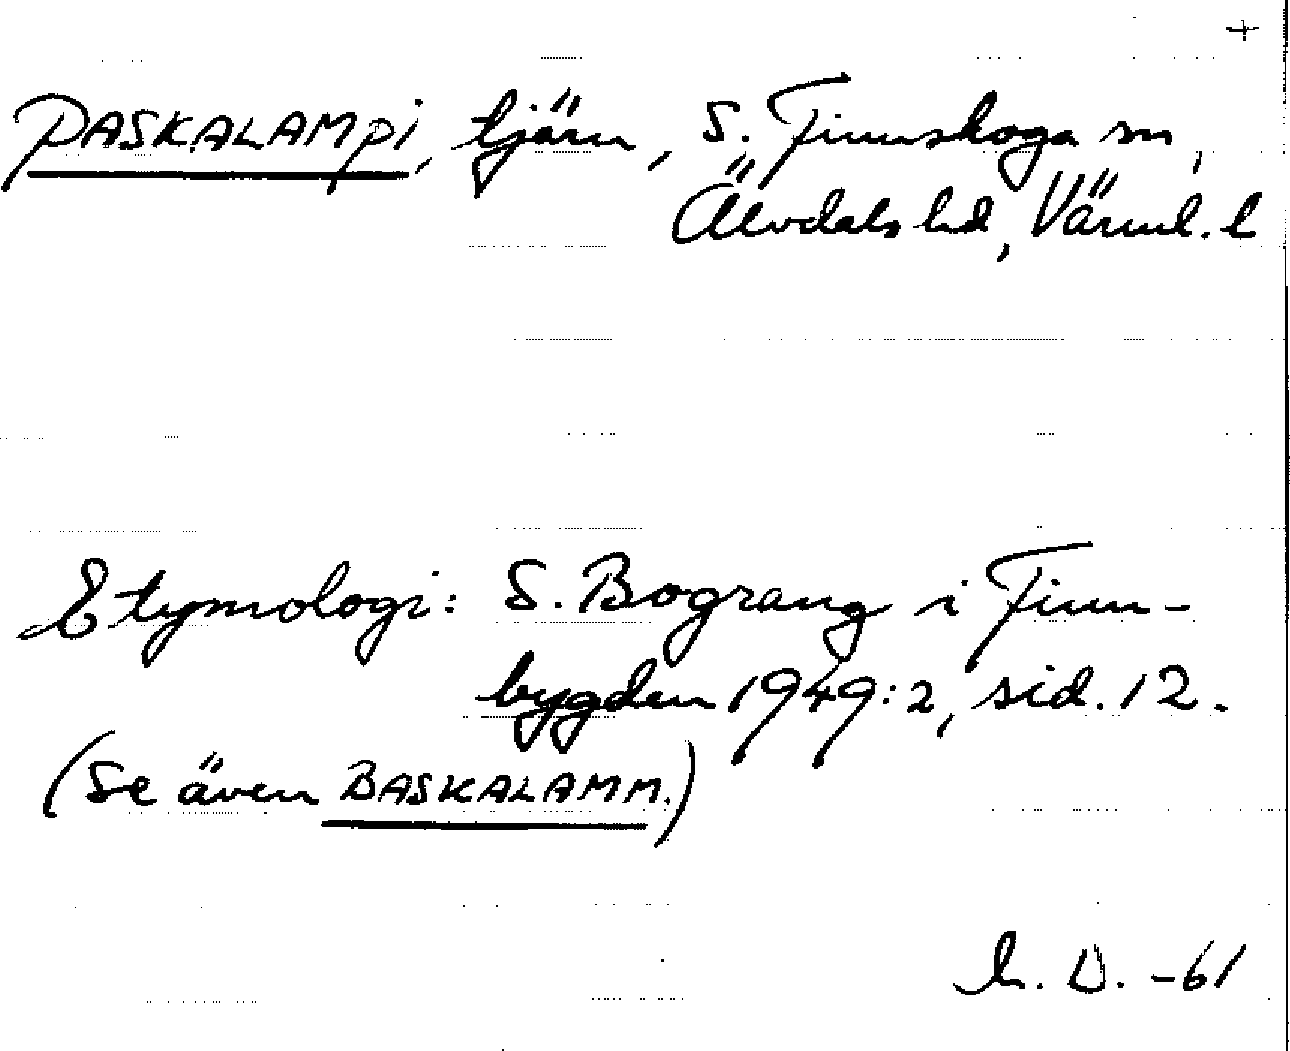 +
PASKALAMPI, tjärn, S. Finnskoga sn,
Älvdals hd, Värml. l
Etymologi: S. Bograng i Finn-
bygden 1949:2, sid. 12.
(Se även BASKALAMM.)
D. -61